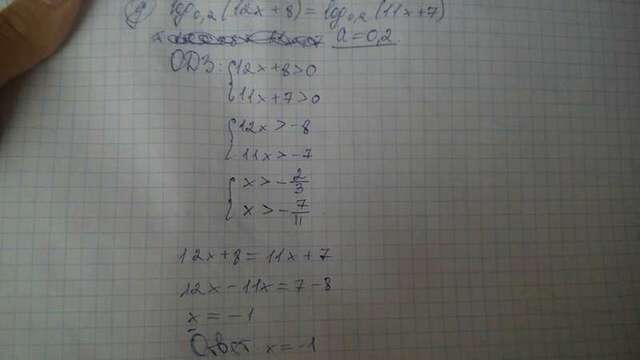 g) log₀,₂(12x+8) = log₀,₂(11x+7)
a=0,2
ОДЗ: { 12x+8>0
11x+7>0
{ 12x>-8
11x>-7
{ x>-2/3
x>-7/11
12x+8=11x+7
12x-11x=7-8
x=-1
Ответ x=-1